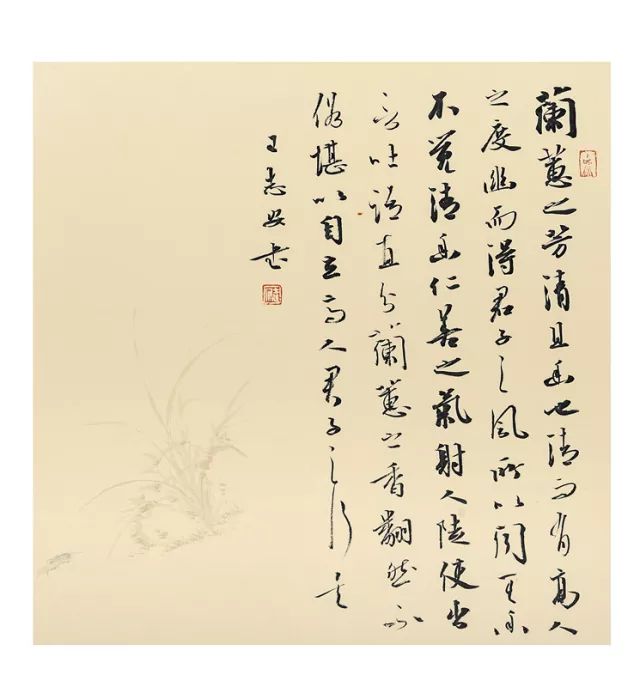 蘭蕙之芳清且幽也清而有高人
之度幽而得君子之風所以聞
不覺清幽仁善之氣射人陡使出
言吐語直分蘭蕙之香翩然不
俗堪以自立高人君子之行
王志安書